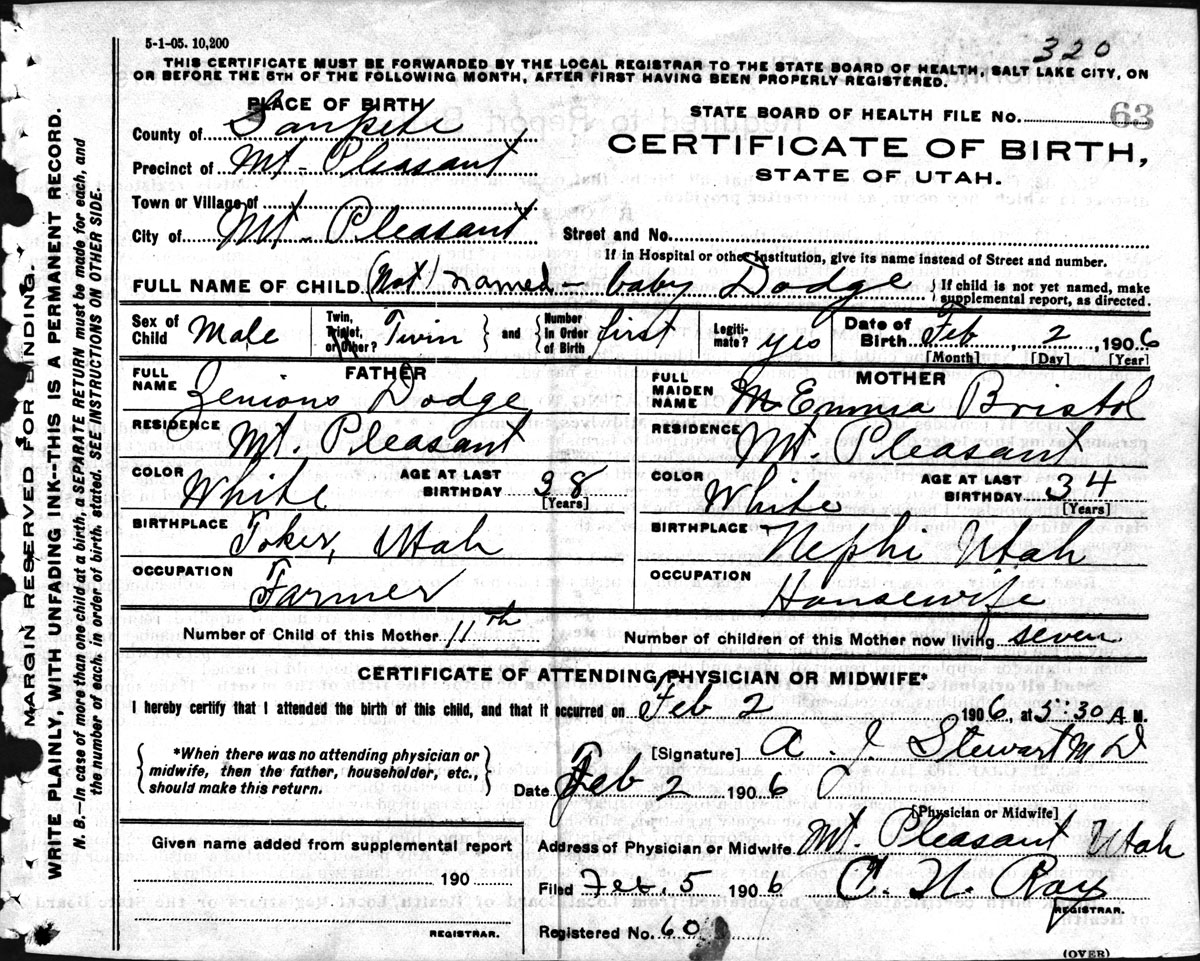 5-1-05. 10,200
320
THIS CERTIFICATE MUST BE FORWARDED BY THE LOCAL REGISTRAR TO THE STATE BOARD OF HEALTH, SALT LAKE CITY, ON
OR BEFORE THE 5TH OF THE FOLLOWING MONTH, AFTER FIRST HAVING BEEN PROPERLY REGISTERED.
PLACE OF BIRTH
STATE BOARD OF HEALTH FILE No. 63
County of Sanpete
CERTIFICATE OF BIRTH,
Precinct of Mt-Pleasant
STATE OF UTAH.
Town or Village of
City of Mt-Pleasant
Street and No.
If in Hospital or other Institution, give its name instead of Street and number.
FULL NAME OF CHILD (Not) named - baby Dodge { If child is not yet named, make supplemental report, as directed.
Sex of Child Male
Twin, Triplet, or Other? Twin } and { Number In Order of Birth first
Legiti-mate? yes
Date of Birth Feb, 2, 1906
[Month] [Day] [Year]
FATHER
FULL NAME Zenions Dodge
RESIDENCE Mt. Pleasant
COLOR White AGE AT LAST BIRTHDAY 38 [Years]
BIRTHPLACE Toker, Utah
OCCUPATION Farmer
MOTHER
FULL MAIDEN NAME M Emma Bristol
RESIDENCE Mt. Pleasant
COLOR White AGE AT LAST BIRTHDAY 34 [Years]
BIRTHPLACE Nephi Utah
OCCUPATION Housewife
Number of Child of this Mother 11th
Number of children of this Mother now living seven
CERTIFICATE OF ATTENDING PHYSICIAN OR MIDWIFE*
I hereby certify that I attended the birth of this child, and that it occurred on Feb 2 1906, at 5:30 A M.
{ *When there was no attending physician or midwife, then the father, householder, etc., should make this return. }
[Signature] A. J. Stewart M D
Date Feb 2 1906
[Physician or Midwife]
Given name added from supplemental report
190
REGISTRAR.
Address of Physician or Midwife Mt. Pleasant Utah
Filed Feb, 5 1906 C. N. Ray
REGISTRAR.
Registered No. 60
(OVER)
MARGIN RESERVED FOR BINDING.
WRITE PLAINLY, WITH UNFADING INK--THIS IS A PERMANENT RECORD.
N. B.—In case of more than one child at a birth, a SEPARATE RETURN must be made for each, and
the number of each, in order of birth, stated. SEE INSTRUCTIONS ON OTHER SIDE.